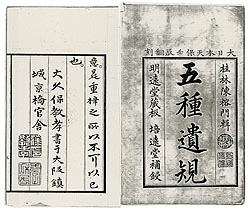 大日本天保壬辰翻刻
桂林陳榕門輯
五種遺規
明遠堂藏板 培遠堂補鋟
意。是重梓之所以不可以已
也。
大久保教孝書于大阪鎮
城京橋官舍